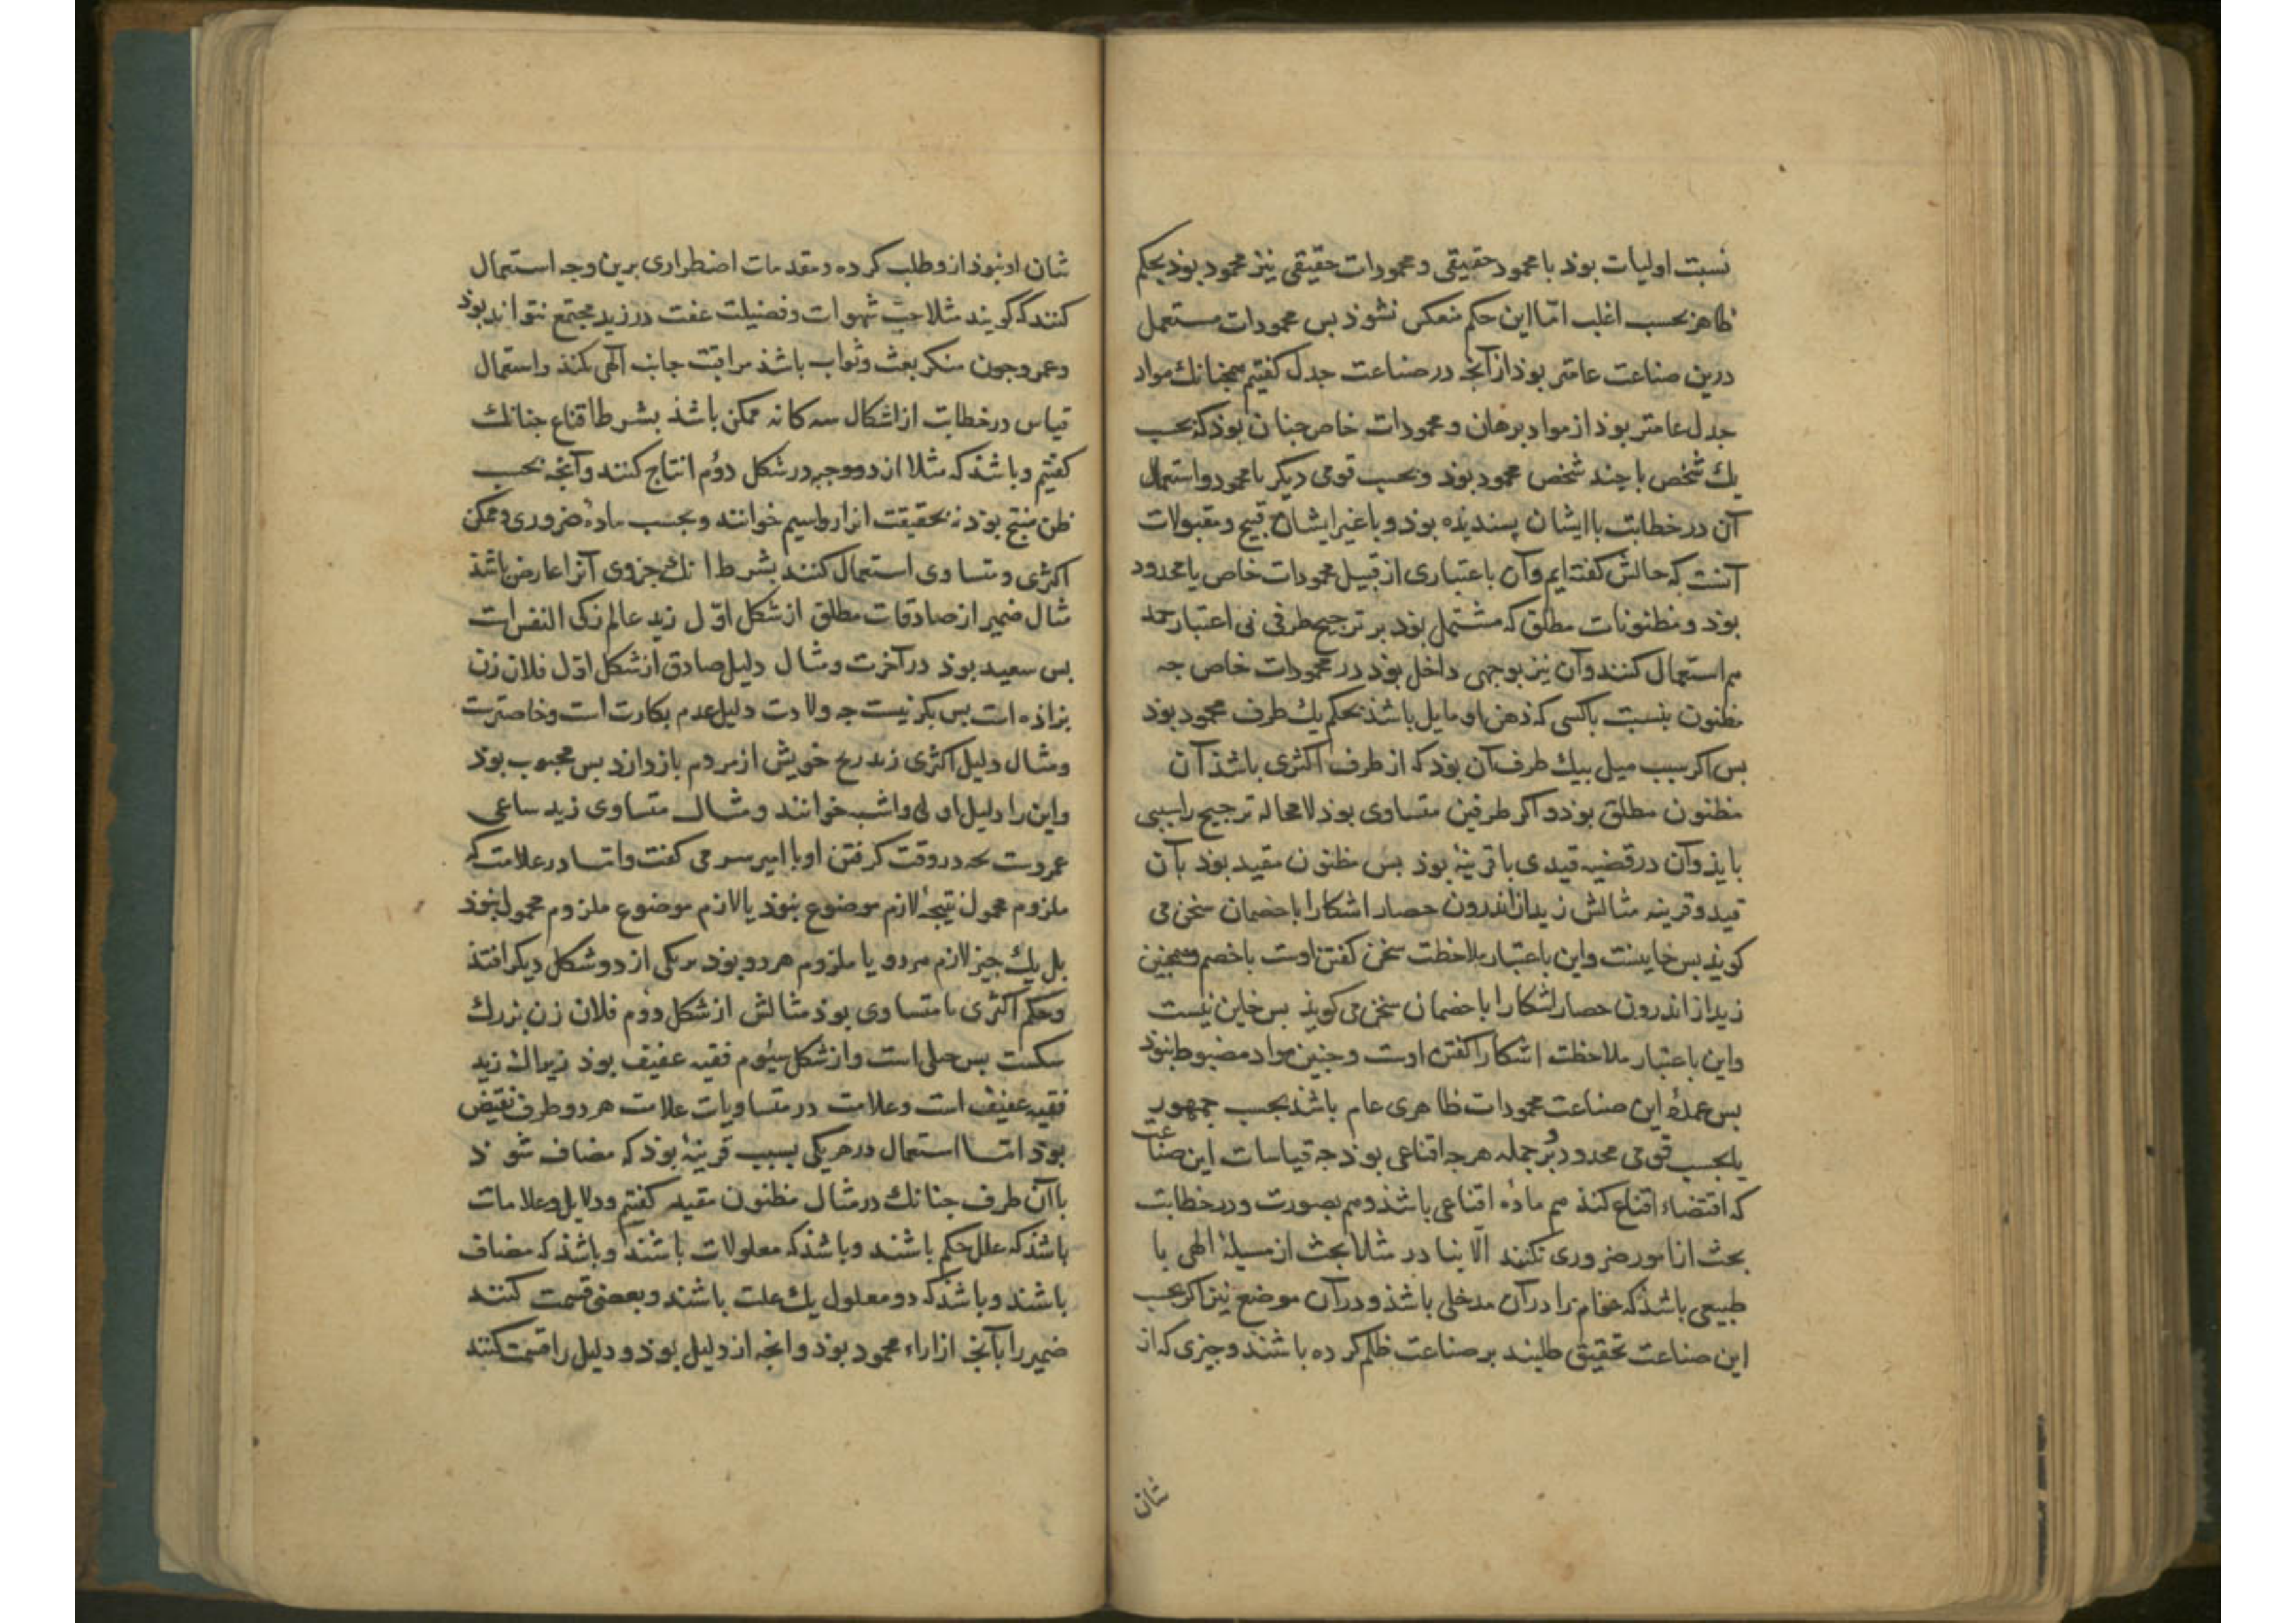 نسبت اولیات بوذ با محمود حقیقی و محمودات حقیقی نیز محمود بوذ بحکم
ظاهر بحسب اغلب امّا این حکم منعکس نشوذ بس محمودات مستعمل
درین صناعت عامتر بوذ از آنچه در صناعت جدل کفتیم همجنانك مواد
جدل عامتر بوذ از مواد برهان و محمودات خاص جنان بوذ که بحسب
یك شخص یا چند شخص محمود بوذ و بحسب قومی دیکر نامحمود و استعمال
آن در خطابت با ایشان پسندیذه بوذ و با غیر ایشان قبیح و مقبولات
آنست که حالش کفته ایم و آن باعتباری از قبیل محمودات خاص یا محدود
بوذ و مظنونات مطلق که مشتمل بوذ بر ترجیح طرفی بی اعتبار حمد
هم استعمال کنند و آن نیز بوجهی داخل بوذ در محمودات خاص جه
مظنون بنسبت باکسی که ذهن او مایل باشذ بحکم یك طرف محمود بوذ
بس اکر سبب میل بیك طرف آن بوذ که از طرف اکثری باشذ آن
مظنون مطلق بوذ و اکر طرفین متساوی بوذ لامحاله ترجیح را سببی
بایذ و آن در قضیه قیدی یا قرینهٔ بوذ بس مظنون مقید بوذ بآن
قید و قرینه مثالش زید از اندرون حصار اشکارا باخصمان سخن می
کویذ بس خاینست و این باعتبار ملاحظت سخن کفتن اوست باخصم و همجنین
زید از اندرون حصار اشکارا باخصمان سخن می کویذ بس خاین نیست
و این باعتبار ملاحظت اشکارا کفتن اوست و جنین مواد مضبوط نبوذ
بس عمدهٔ این صناعت محمودات ظاهری عام باشذ بحسب جمهور
یا بحسب قومی محدود و بر جمله هرجه اقناعی بوذ جه قیاسات این صناعت
که اقتضاء اقناع کند هم مادهٔ اقناعی باشذ و هم بصورت و در خطابت
بحث از امور ضروری نکنند الّا بنادر مثلا بحث از مسیلهٔ الهی یا
طبیعی باشذ که عوام را در آن مدخلی باشذ و در آن موضع نیز اکر بحسب
این صناعت تحقیق طلبند بر صناعت ظلم کرده باشند و جیزی که از
شان
شان او نبوذ ازو طلب کرده و مقدمات اضطراری برین وجه استعمال
کنند که کویند مثلا حبّ شهوات و فضیلت عفت در زید مجتمع نتواند بوذ
و عمرو جون منکر بعث و ثواب باشذ مراقبت جانب آلهی نکند و استعمال
قیاس در خطابت از اشکال سه کانه ممکن باشذ بشرط اقناع جنانك
کفتیم و باشذ که مثلا از دو موجبه در شکل دوّم انتاج کنند و آنچه بحسب
ظن منتج بوذ نه بحقیقت انرا رواسیم خوانند و بحسب مادهٔ ضروری و ممکن
اکثری و متساوی استعمال کنند بشرط انك جزوی آنرا عارض باشذ
مثال ضمیر از صادقات مطلق از شکل اوّل زید عالم زکی النفس است
بس سعید بوذ در آخرت و مثال دلیل صادق از شکل اوّل فلان زن
بزاذه است بس بکر نیست جه ولادت دلیل عدم بکارت است و خاصترست
و مثال دلیل اکثری زید رنج خویش از مردم بازدارد بس محبوب بوذ
و این را دلیل اولی و اشبه خوانند و مثال متساوی زید ساعی
عمروست جه در وقت کرفتن او با امیر سر می کفت و اما در علامت که
ملزوم محمول نتیجهٔ لازم موضوع نبوذ یا لازم موضوع ملزوم محمول نبوذ
بل یك جیز لازم هر دو یا ملزوم هر دو بوذ بریکی از دو شکل دیکر افتذ
و حکم اکثری یا متساوی بوذ مثالش از شکل دوم فلان زن بزرك
شکمست بس حبلی است و از شکل سیوم فقیه عفیف بوذ زیراك زید
فقیه عفیف است و علامت در متساویات علامت هر دو طرف نقیض
بوذ اما استعمال در هریکی بسبب قرینهٔ بوذ که مضاف شوذ
با آن طرف جنانك در مثال مظنون مقید کفتیم و دلایل و علامات
باشذ که علل حکم باشند و باشذ که معلولات باشند و باشذ که مضاف
باشند و باشذ که دو معلول یك علت باشند و بعضی قسمت کنند
ضمیر را بآنچ از اراء محمود بوذ و انچه از دلیل بوذ و دلیل را قسمت کنند